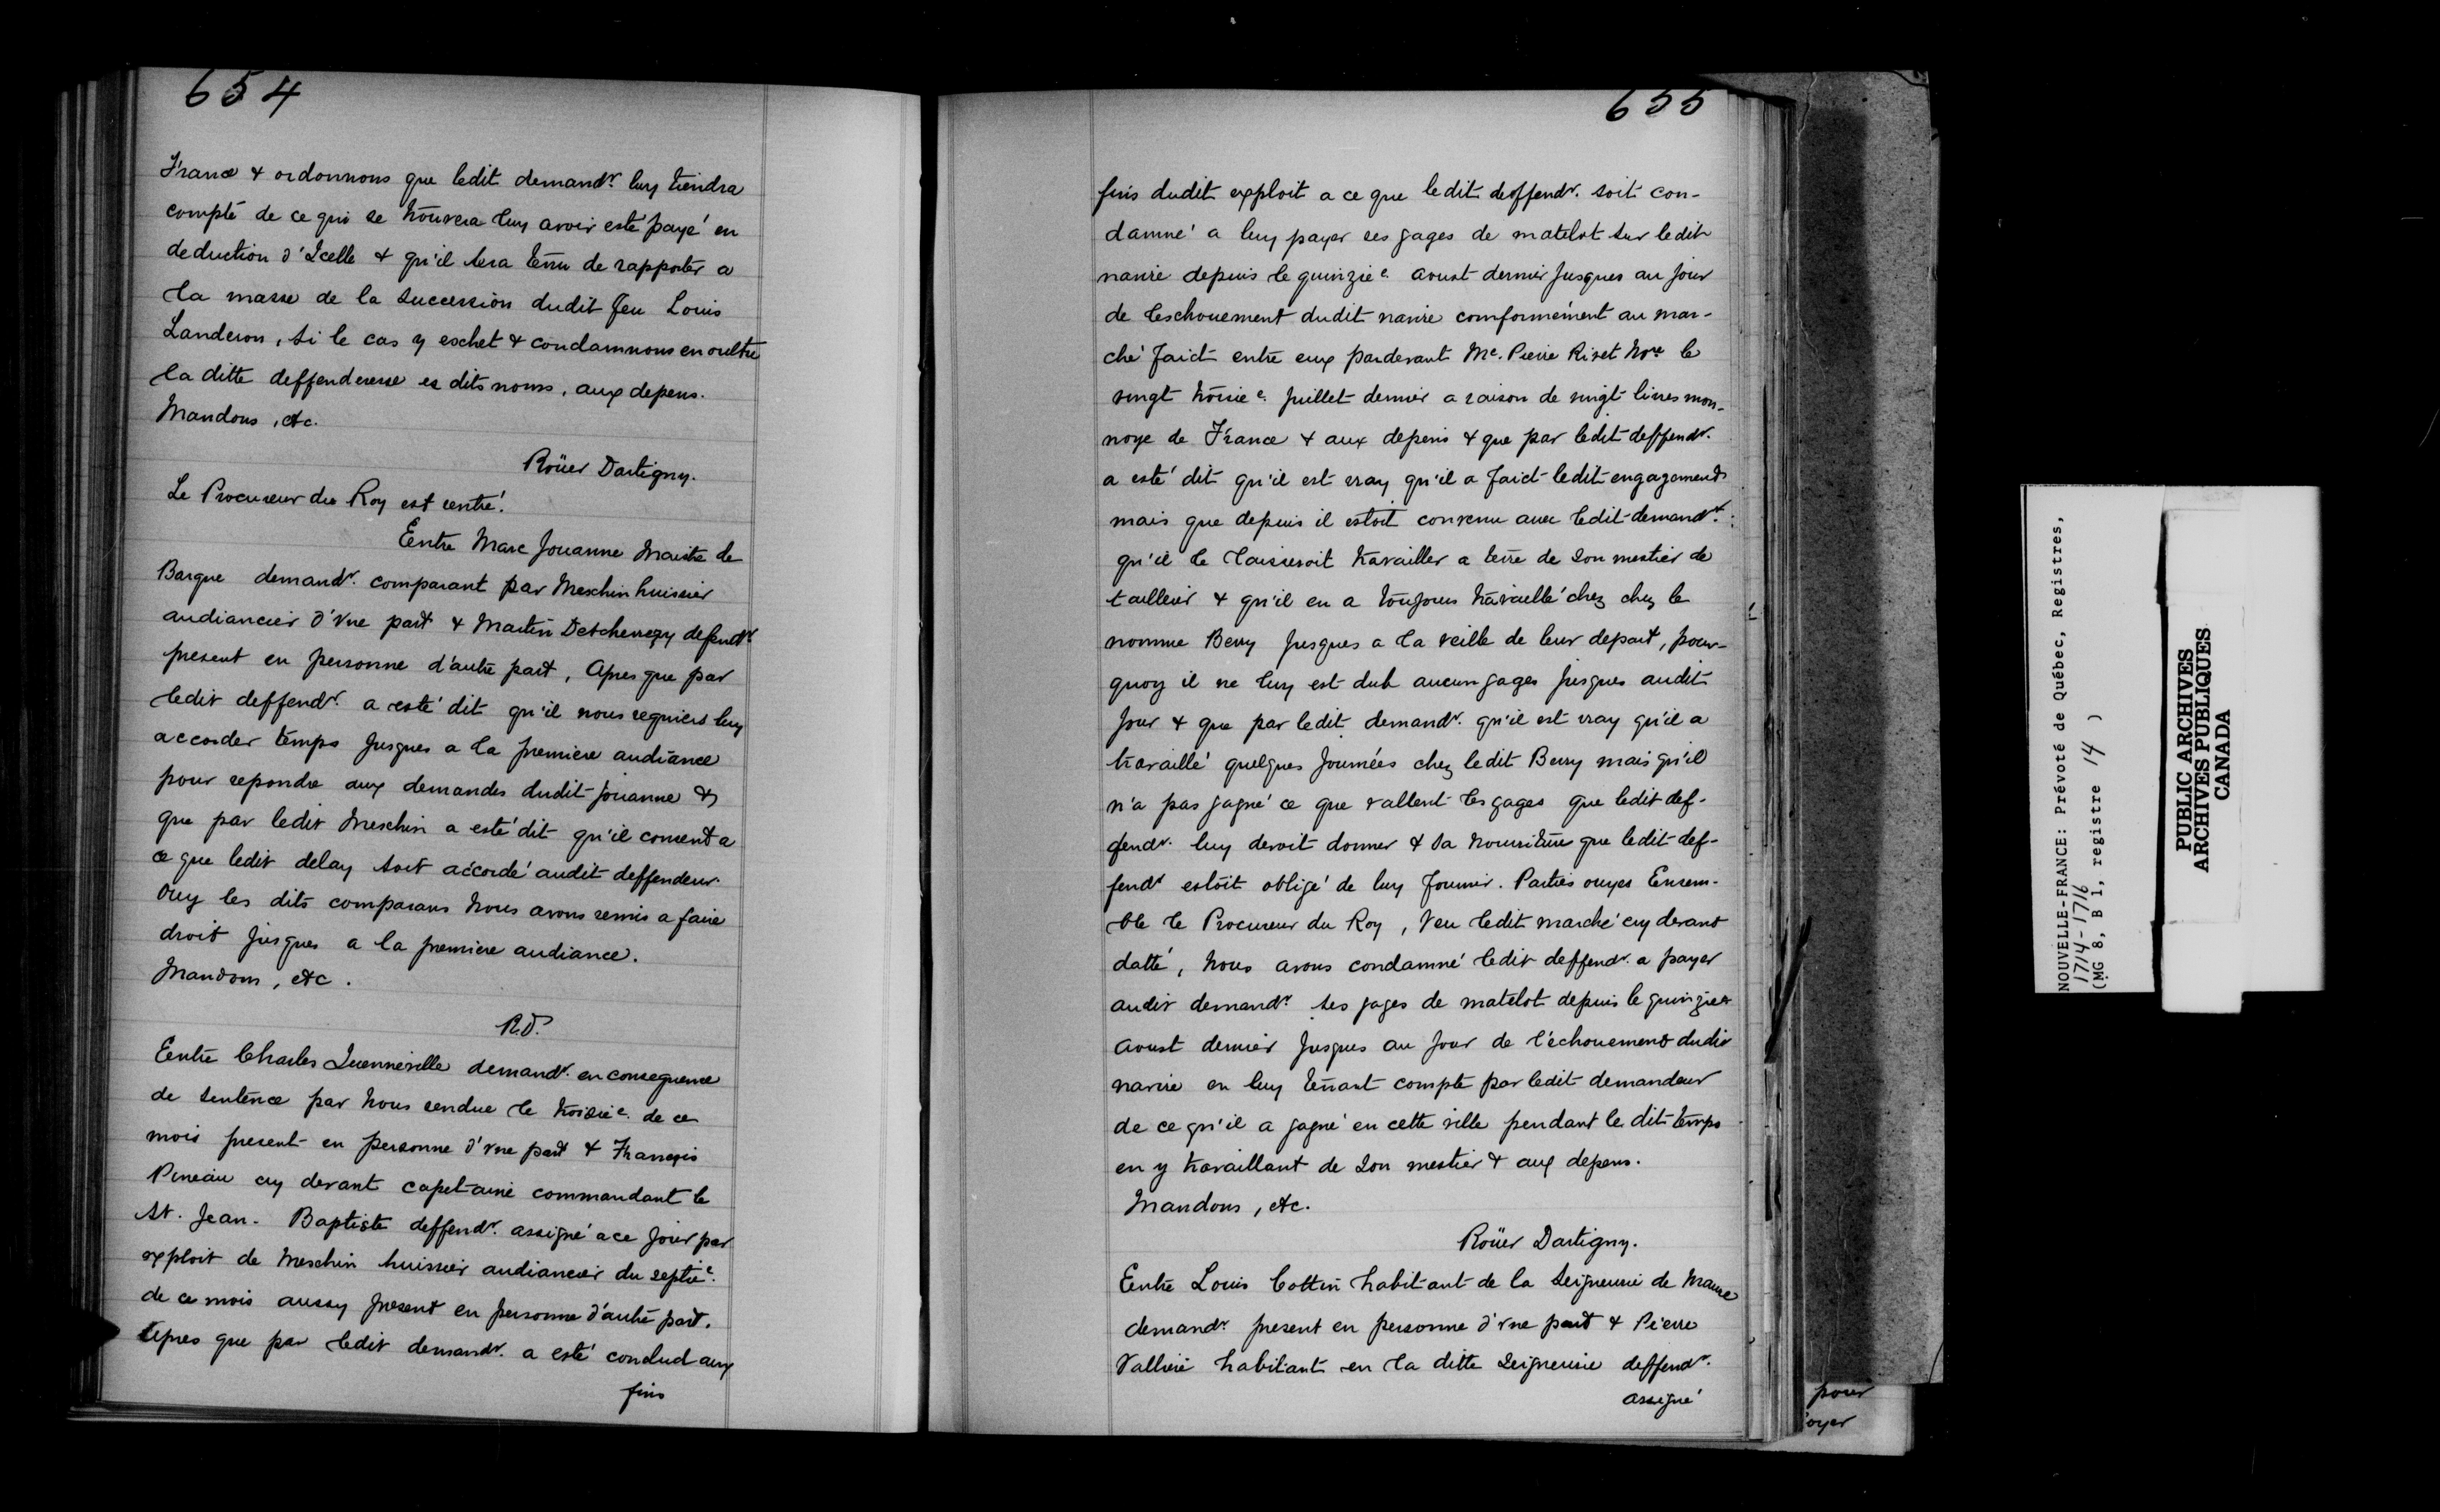 654
France & ordonnons que ledit demandr. luy tiendra
compte de ce qui se trouvera luy avoir esté payé en
deduction d'Icelle & qu'il sera tenu de rapporter a
la masse de la succession dudit feu Louis
Landeron, si le cas y eschet & condamnons en oultre
la ditte deffenderesse es dits noms, aux depens.
Mandons, etc.
Roüer Dartigny.
Le Procureur du Roy est rentré.
Entre Marc Jouanne Maistre de
Barque demandr. comparant par Meschin huissier
audiancier d'vne part & Martin Detcheverry defendr.
present en personne d'autre part, Apres que par
ledit deffendr. a esté dit qu'il nous requiert luy
accorder temps Jusques a la premiere audiance
pour repondre aux demandes dudit Jouanne &
que par ledit Meschin a esté dit qu'il consent a
ce que ledit delay soit accordé audit deffendeur.
Ouy les dits comparans Nous avons remis a faire
droit Jusques a la premiere audiance.
Mandons, etc.
R.D.
Entre Charles Quenneville demandr. en consequence
de sentence par Nous rendue le troisie. de ce
mois present en personne d'vne part & François
Pineau cy devant capetaine commandant le
St. Jean-Baptiste deffendr. assigné a ce Jour par
exploit de Meschin huissier audiancier du septie.
de ce mois aussy present en personne d'autre part.
Apres que par ledit demandr. a esté conclud aux
fins
655
fins dudit exploit a ce que ledit deffendr. soit con-
damné a luy payer ses gages de matelot sur ledit
navire depuis le quinzie. aoust dernier Jusques au Jour
de l'eschouement dudit navire comformément au mar-
ché faict entre eux pardevant Me. Pierre Rivet Nore le
vingt troisie. Juillet dernier a raison de vingt livres mon-
noye de France & aux depens & que par ledit deffendr.
a esté dit qu'il est vray qu'il a faict ledit engagement
mais que depuis il estoit convenu avec ledit demandr.
qu'il le laisseroit travailler a terre de son mestier de
tailleur & qu'il en a toujours travaillé chez chez le
nomme Berry Jusques a la veille de leur depart, pour-
quoy il ne luy est dub aucun gages Jusques audit
Jour & que par ledit demandr. qu'il est vray qu'il a
travaillé quelques Journées chez ledit Berry mais qu'il
n'a pas gagné ce que vallent les gages que ledit def-
fendr. luy devoit donner & sa nourriture que ledit def-
fendr estoit obligé de luy fournir. Parties ouyes Ensem-
ble le Procureur du Roy, Veu ledit marché cy devant
datté, Nous avons condamné ledit deffendr. a payer
audit demandr. ses gages de matelot depuis le quinzie.
aoust dernier Jusques au Jour de l'échouement dudit
navire en luy tenant compte par ledit demandeur
de ce qu'il a gagné en cette ville pendant le dit temps
en y travaillant de son mestier & aux depens.
Mandons, etc.
Roüer Dartigny.
Entre Louis Cottin habitant de la Seigneurie de Maure
demandr present en personne d'vne part & Pierre
Valliere habitant en la ditte Seigneurie deffendr.
assigné
pour
oyer
NOUVELLE-FRANCE: Prévoté de Québec, Registres,
1714-1716
(MG 8, B 1, registre 14 )
PUBLIC ARCHIVES
ARCHIVES PUBLIQUES
CANADA